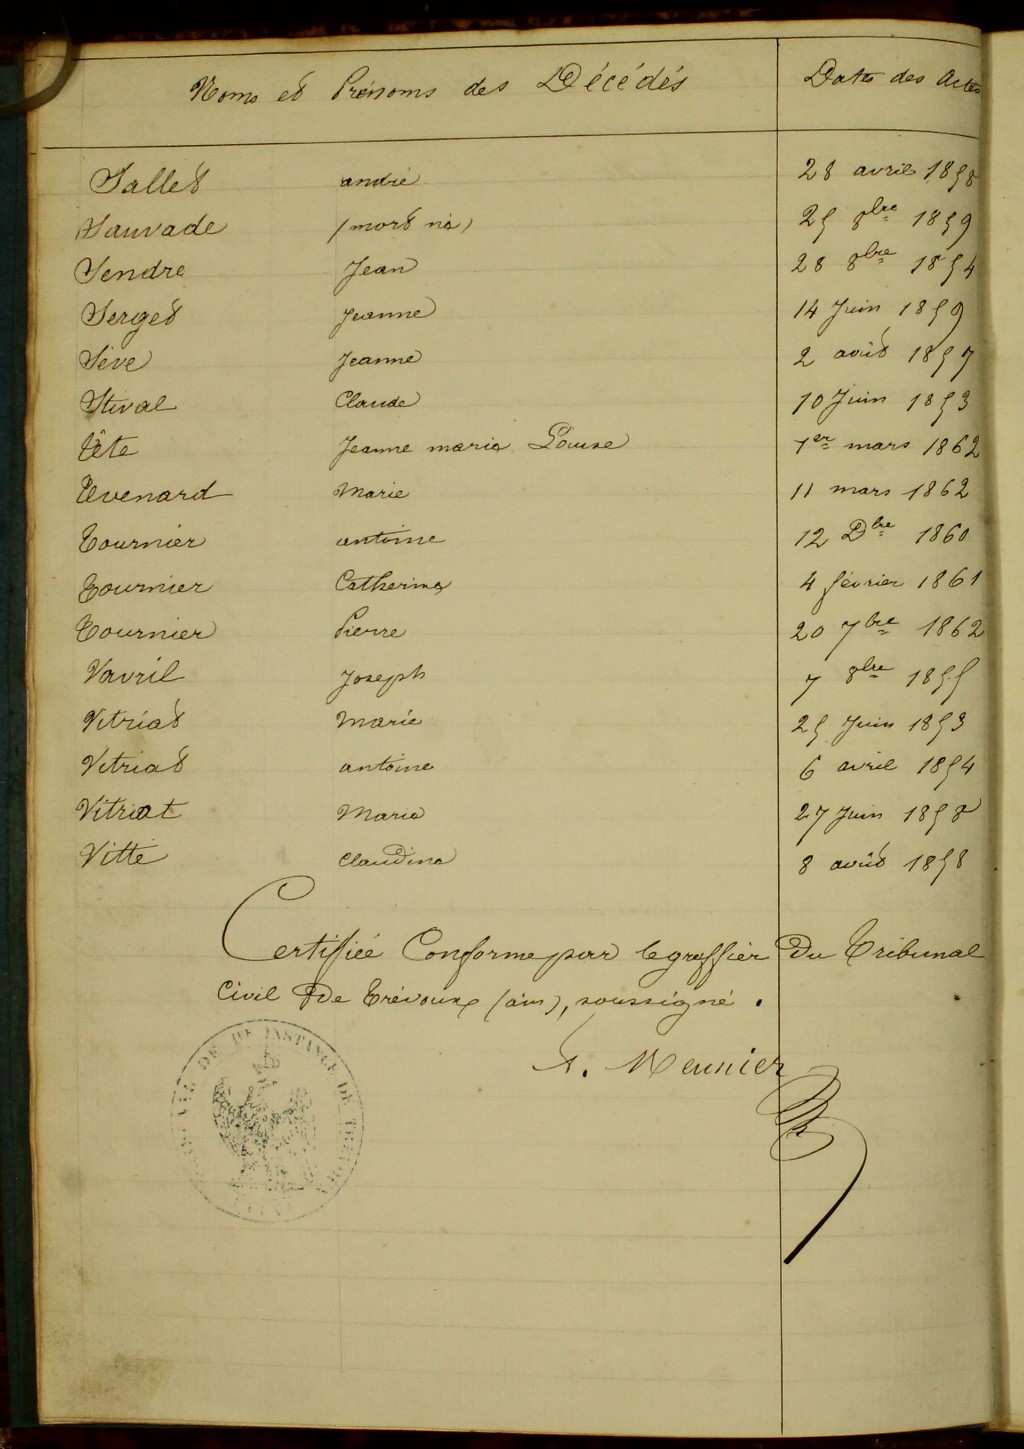 Noms et Prénoms des Décédés Dates des Actes
Sallet andré 28 avril 1858
Sauvade (mort né) 25 8bre 1859
Sendre Jean 28 8bre 1854
Serget Jeanne 14 Juin 1859
Séve Jeanne 2 août 1857
Stival Claude 10 Juin 1853
Tête Jeanne marie Louise 1er mars 1862
Thevenard Marie 11 mars 1862
Tournier antoine 12 Dbre 1860
Tournier Catherine 4 février 1861
Tournier Pierre 20 7bre 1862
Vavril Joseph 7 8bre 1855
Vitriat Marie 25 Juin 1853
Vitriat antoine 6 avril 1854
Vitriat Marie 27 Juin 1858
Vitte Claudine 8 août 1858
Certifiée Conforme par le greffier Du Tribunal
Civil De Trévoux (ain), soussigné.
A. Meunier
DE 1re INSTANCE DE TRÉVOUX